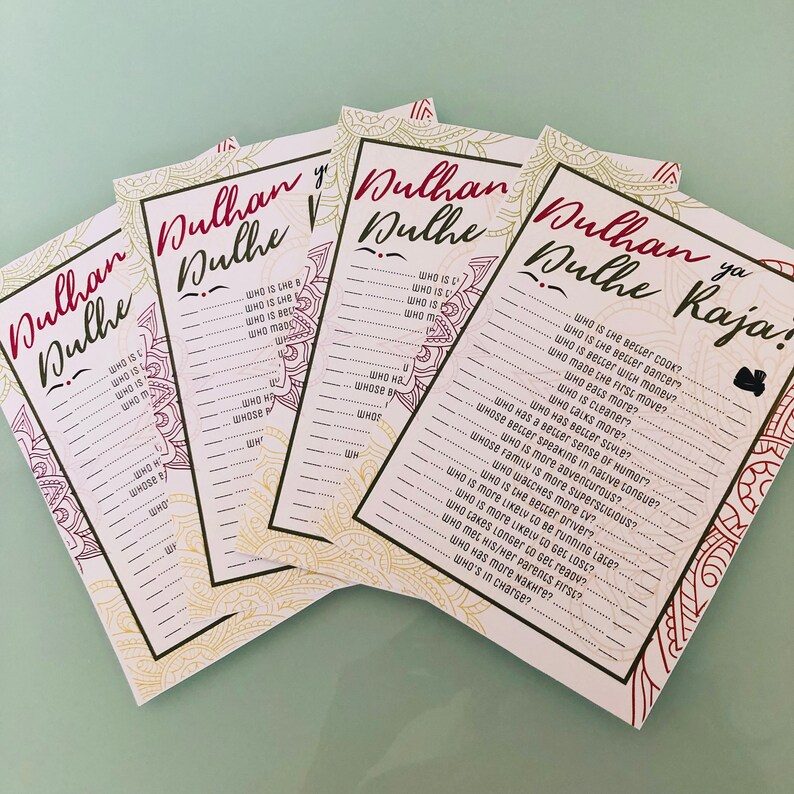 Dulhan
Dulhe
who is
who is
who is
who
who
whose
Dulhan ya
Dulhe
who is the
who is the
who is
who
who
whose
Dulhan
Dulhe
who is
who is
who is
who
who
whose
Dulhan ya
Dulhe Raja?
who is the better cook?
who is the better dancer?
who is better with money?
who made the first move?
who eats more?
who is cleaner?
who talks more?
who has better style?
who has a better sense of humor?
whose better speaking in native tongue?
who is more adventurous?
whose family is more superstitious?
who watches more tv?
who is the better driver?
who is more likely to be running late?
who is more likely to get lost?
who takes longer to get ready?
who met his/her parents first?
who has more nakhre?
who's in charge?